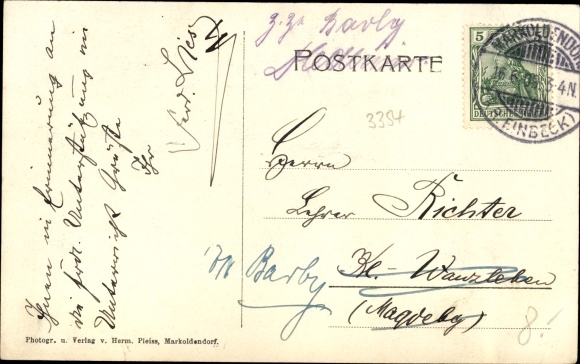 Ihnen in Erinnerung an
die frdl. Unterstützung im
Unterricht Grüße
Ihr
Ferd.
z. Zt. Barby
POSTKARTE
5
DEUTSCHES REICH
MARKOLDENDORF
3-4N.
(EINBECK)
3394
Herrn
Lehrer Richter
Kl. Wanzleben
(Magdebg)
in Barby
8.-
Photogr. u. Verlag v. Herm. Pleiss, Markoldendorf.